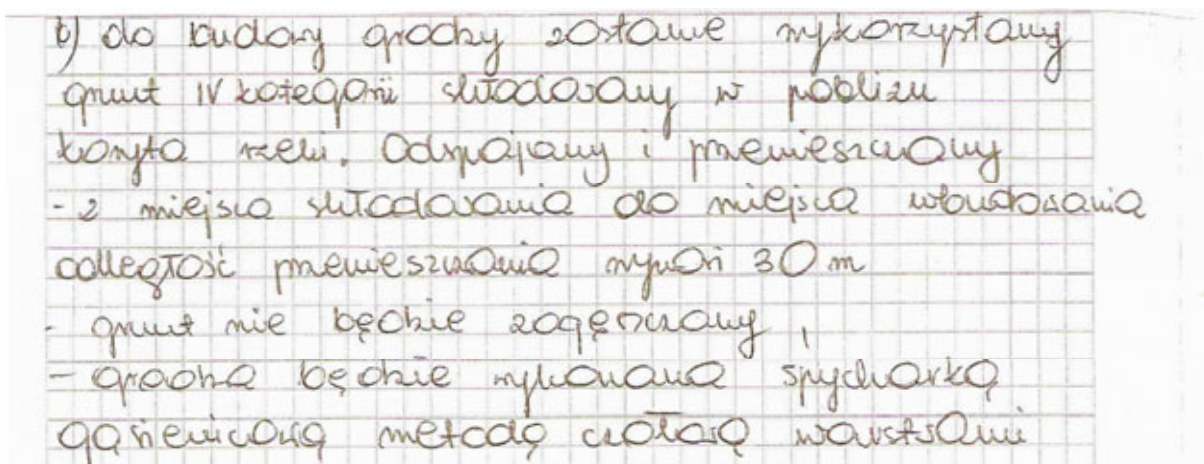 b) do budowy grodzy zostanie wykorzystany
grunt IV kategorii składowany w pobliżu
koryta rzeki. Odspajany i przemieszczany
- z miejsca składowania do miejsca wbudowania
odległość przemieszczania wynosi 30 m
- grunt nie będzie zagęszczany,
- grodza będzie wykonana spycharką
gąsienicową metodą czołową warstwami